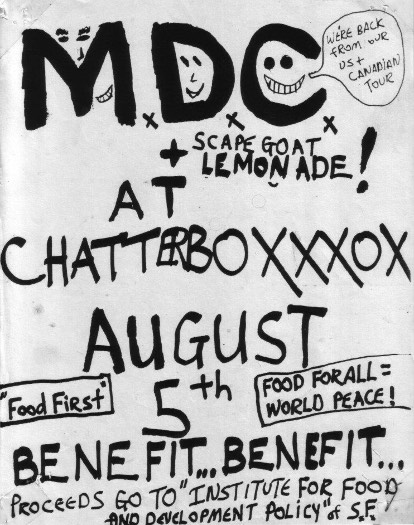 M.D.C.
WE'RE BACK
FROM OUR
US +
CANADIAN
TOUR
+ SCAPEGOAT
LEMONADE!
AT
CHATTERBOXXXOX
AUGUST
5th
"Food First"
FOOD FOR ALL =
WORLD PEACE!
BENEFIT... BENEFIT...
PROCEEDS GO TO "INSTITUTE FOR FOOD
AND DEVELOPMENT POLICY" of S.F.